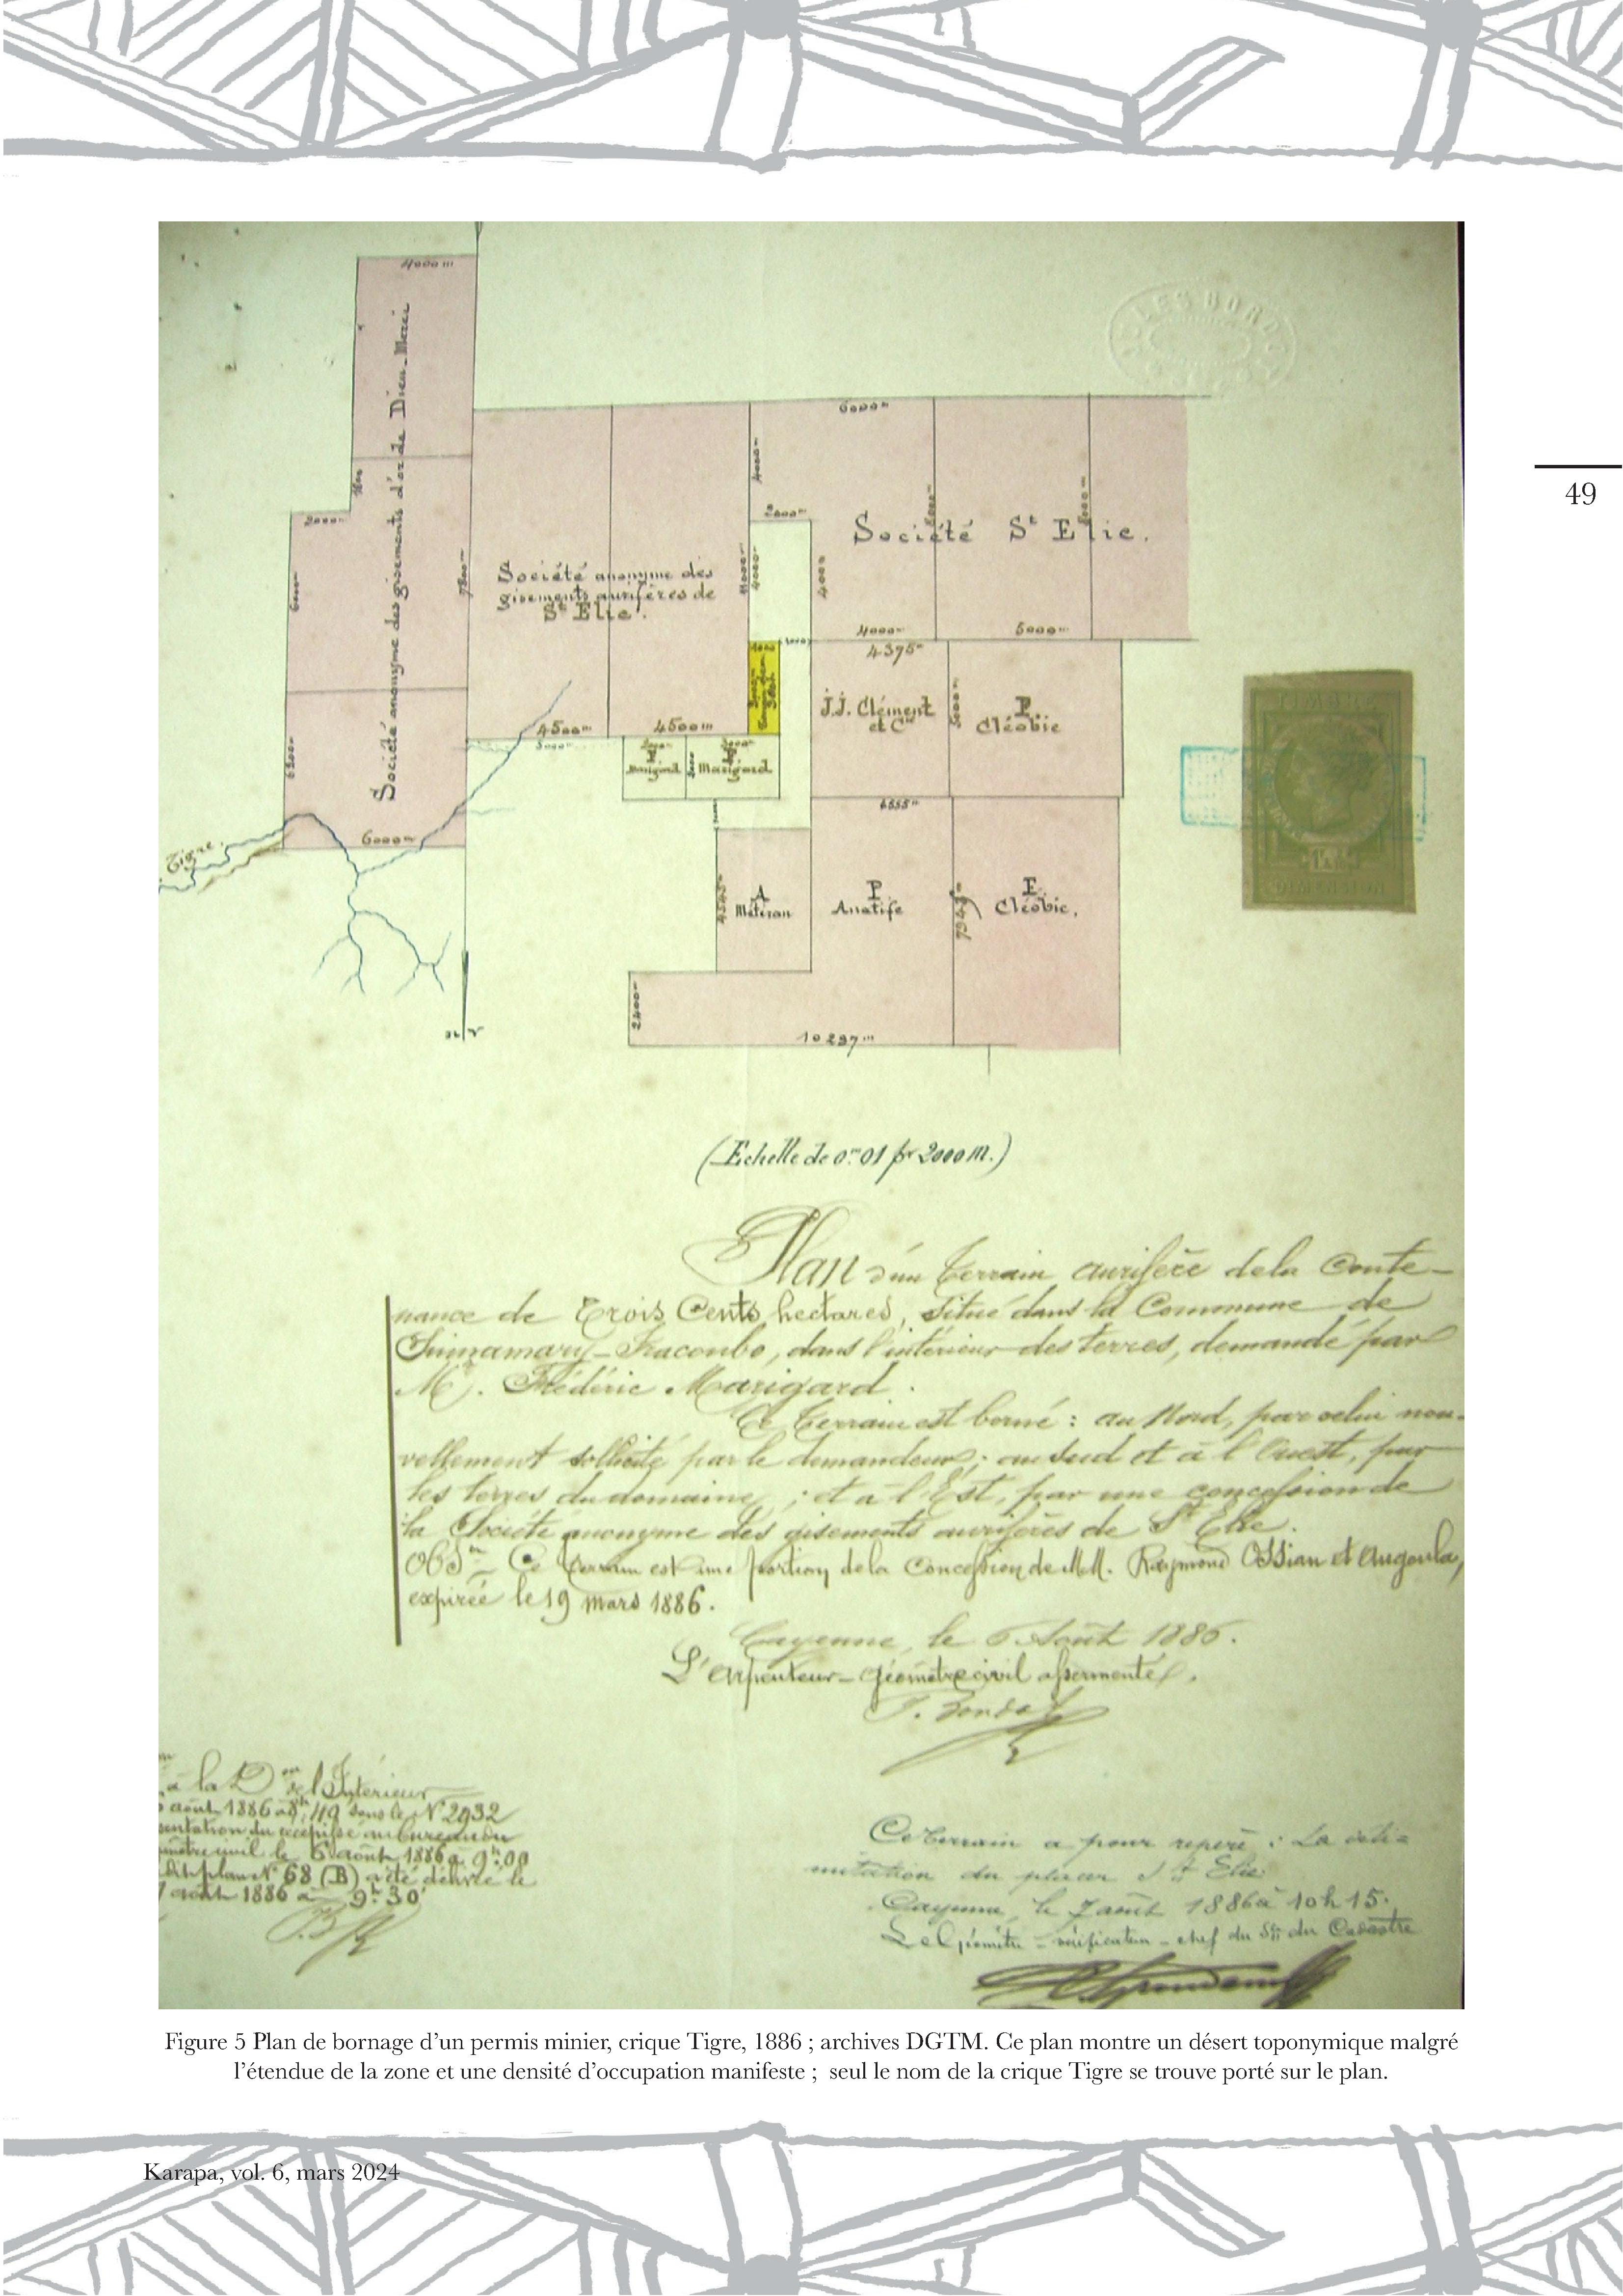 49
4000m
Société anonyme des gisements d'or de Dieu-Merci
2000m
6000m
7800m
6000m
Tigre
Société anonyme des
gisements aurifères de
St Elie.
4500m
4500m
6000m
4000m
2000m
4000m
4000
Société St Elie.
4000m
5000m
4375m
J.J. Clément
et Cie
5000m
P.
Cléobie
Marigard
Marigard
4555m
A
P
Anatife
E.
Cléobie.
2400m
10297m
(Echelle de 0m01 pr 2000m.)
Plan d'un terrain aurifère de la Conte-
nance de Trois Cents hectares, situé dans la Commune de
Sinnamary-Iracoubo, dans l'intérieur des terres, demandé par
Mr. Frédéric Marigard.
Ce terrain est borné : au Nord, par celui nou-
vellement sollicité par le demandeur ; au Sud et à l'Ouest, par
les terres du domaine ; et à l'Est, par une concession de
la Société anonyme des gisements aurifères de St Elie.
Obson - Ce terrain est une portion de la Concession de MM. Raymond Ossian et Augoula,
expirée le 19 mars 1886.
Cayenne, le 6 Août 1886.
L'Arpenteur-Géomètre civil assermenté.
à la Don de l'Intérieur
août 1886 à 8h,, 40 sous le No 2932
sentation du récépissé au bureau du
mètre civil le 6 août 1886 à 9h 00
dit plan No 68 (B) a été délivré le
août 1886 à 9h 30
Ce terrain a pour repère : La déli-
mitation du placer St Elie
Cayenne, le 7 août 1886 à 10h 15.
Le Géomètre-vérificateur-chef du Sce du Cadastre
TIMBRE
DIMENSION
Figure 5 Plan de bornage d'un permis minier, crique Tigre, 1886 ; archives DGTM. Ce plan montre un désert toponymique malgré
l'étendue de la zone et une densité d'occupation manifeste ; seul le nom de la crique Tigre se trouve porté sur le plan.
Karapa, vol. 6, mars 2024